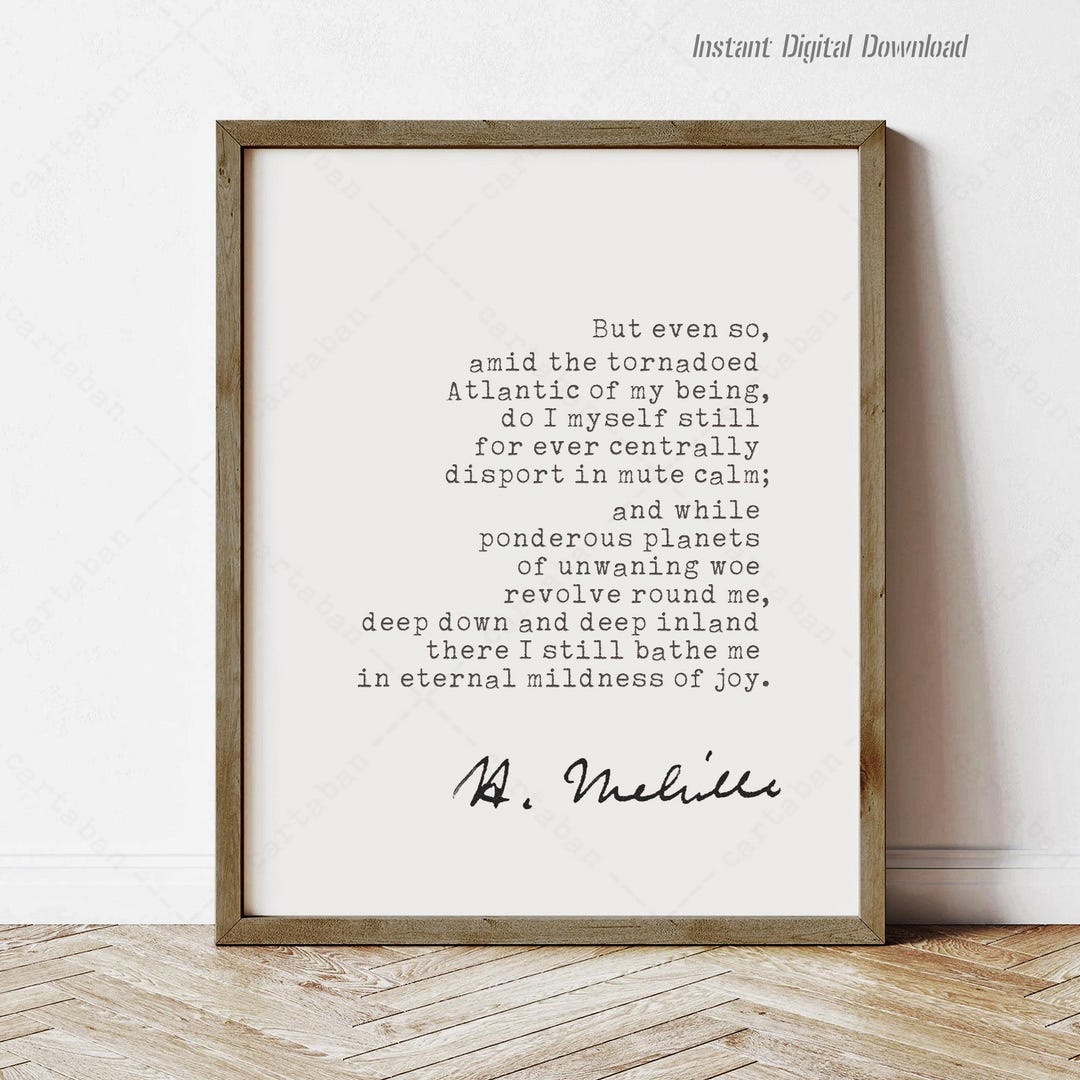 Instant Digital Download
But even so,
amid the tornadoed
Atlantic of my being,
do I myself still
for ever centrally
disport in mute calm;
and while
ponderous planets
of unwaning woe
revolve round me,
deep down and deep inland
there I still bathe me
in eternal mildness of joy.
H. Melville
cartaban